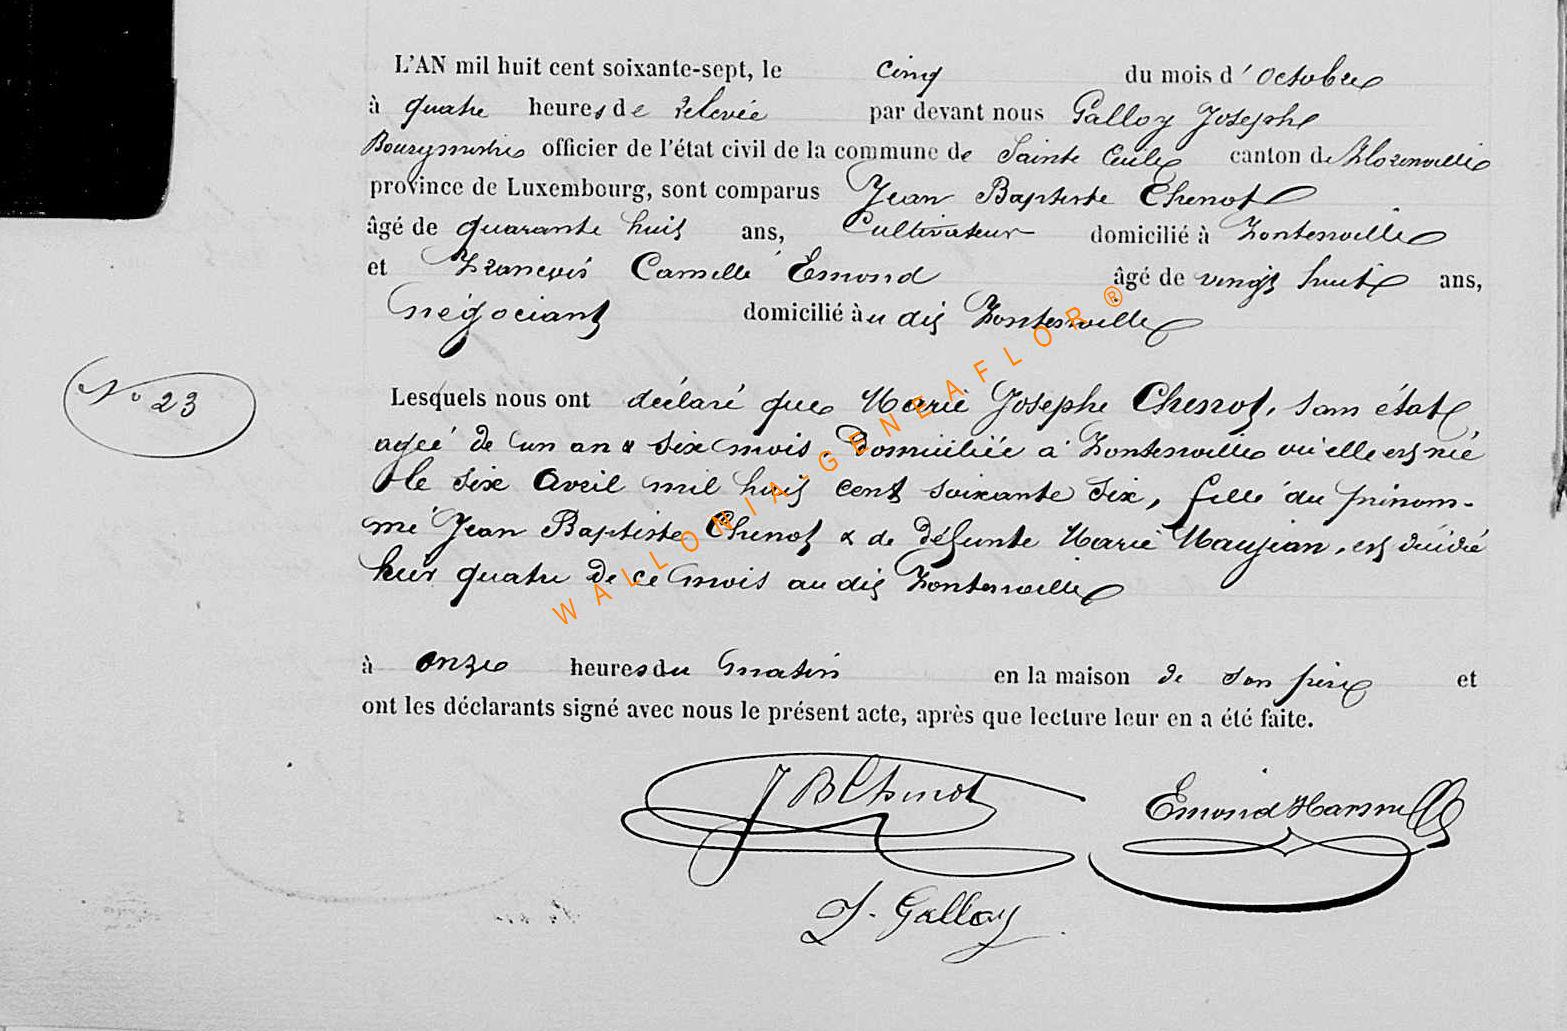 L'AN mil huit cent soixante-sept, le cinq du mois d'octobre
à quatre heures de relevée par devant nous Galloy Joseph
Bourgmestre officier de l'état civil de la commune de Sainte Cécile canton de Florenville
province de Luxembourg, sont comparus Jean Baptiste Chenot
âgé de quarante huit ans, Cultivateur domicilié à Fontenoille
et François Camille Emond âgé de vingt huit ans,
négociant domicilié au dit Fontenoille
N° 23
Lesquels nous ont déclaré que Marie Josephe Chenot, sans état
agée de un an & six mois, Domiciliée à Fontenoille où elle est née
le six Avril mil huit cent soixante six, fille du prénom-
mé Jean Baptiste Chenot & de défunte Marie Maujean, est décédé
hier quatre de ce mois au dit Fontenoille
à onze heures du matin en la maison de son père et
ont les déclarants signé avec nous le présent acte, après que lecture leur en a été faite.
JB Chenot Emond
J. Galloy
WALLONIA-GENEAFLOR®